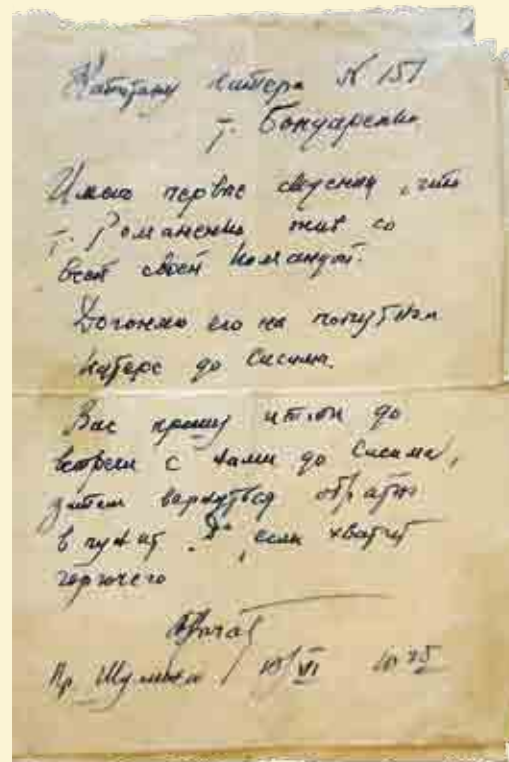 Капитану катера № 151
т. Бондаренко
Имею первые сведения, что
т. Романенко жив со
всей своей командой.
Догоняю его на попутном
катере до Сисима.
Вас прошу идти до
встречи с нами до Сисима,
затем вернуться обратно
в пункт "Д", если хватит
горючего
Пр. Шумиха 10/VI